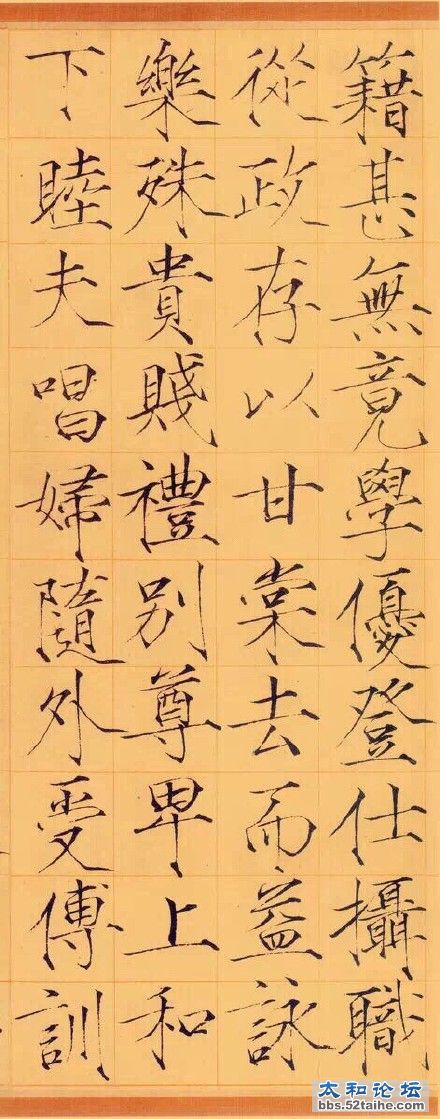 籍甚無竟學優登仕攝職
從政存以甘棠去而益詠
樂殊貴賤禮別尊卑上和
下睦夫唱婦隨外受傅訓
太和论坛
bbs.52taihe.com